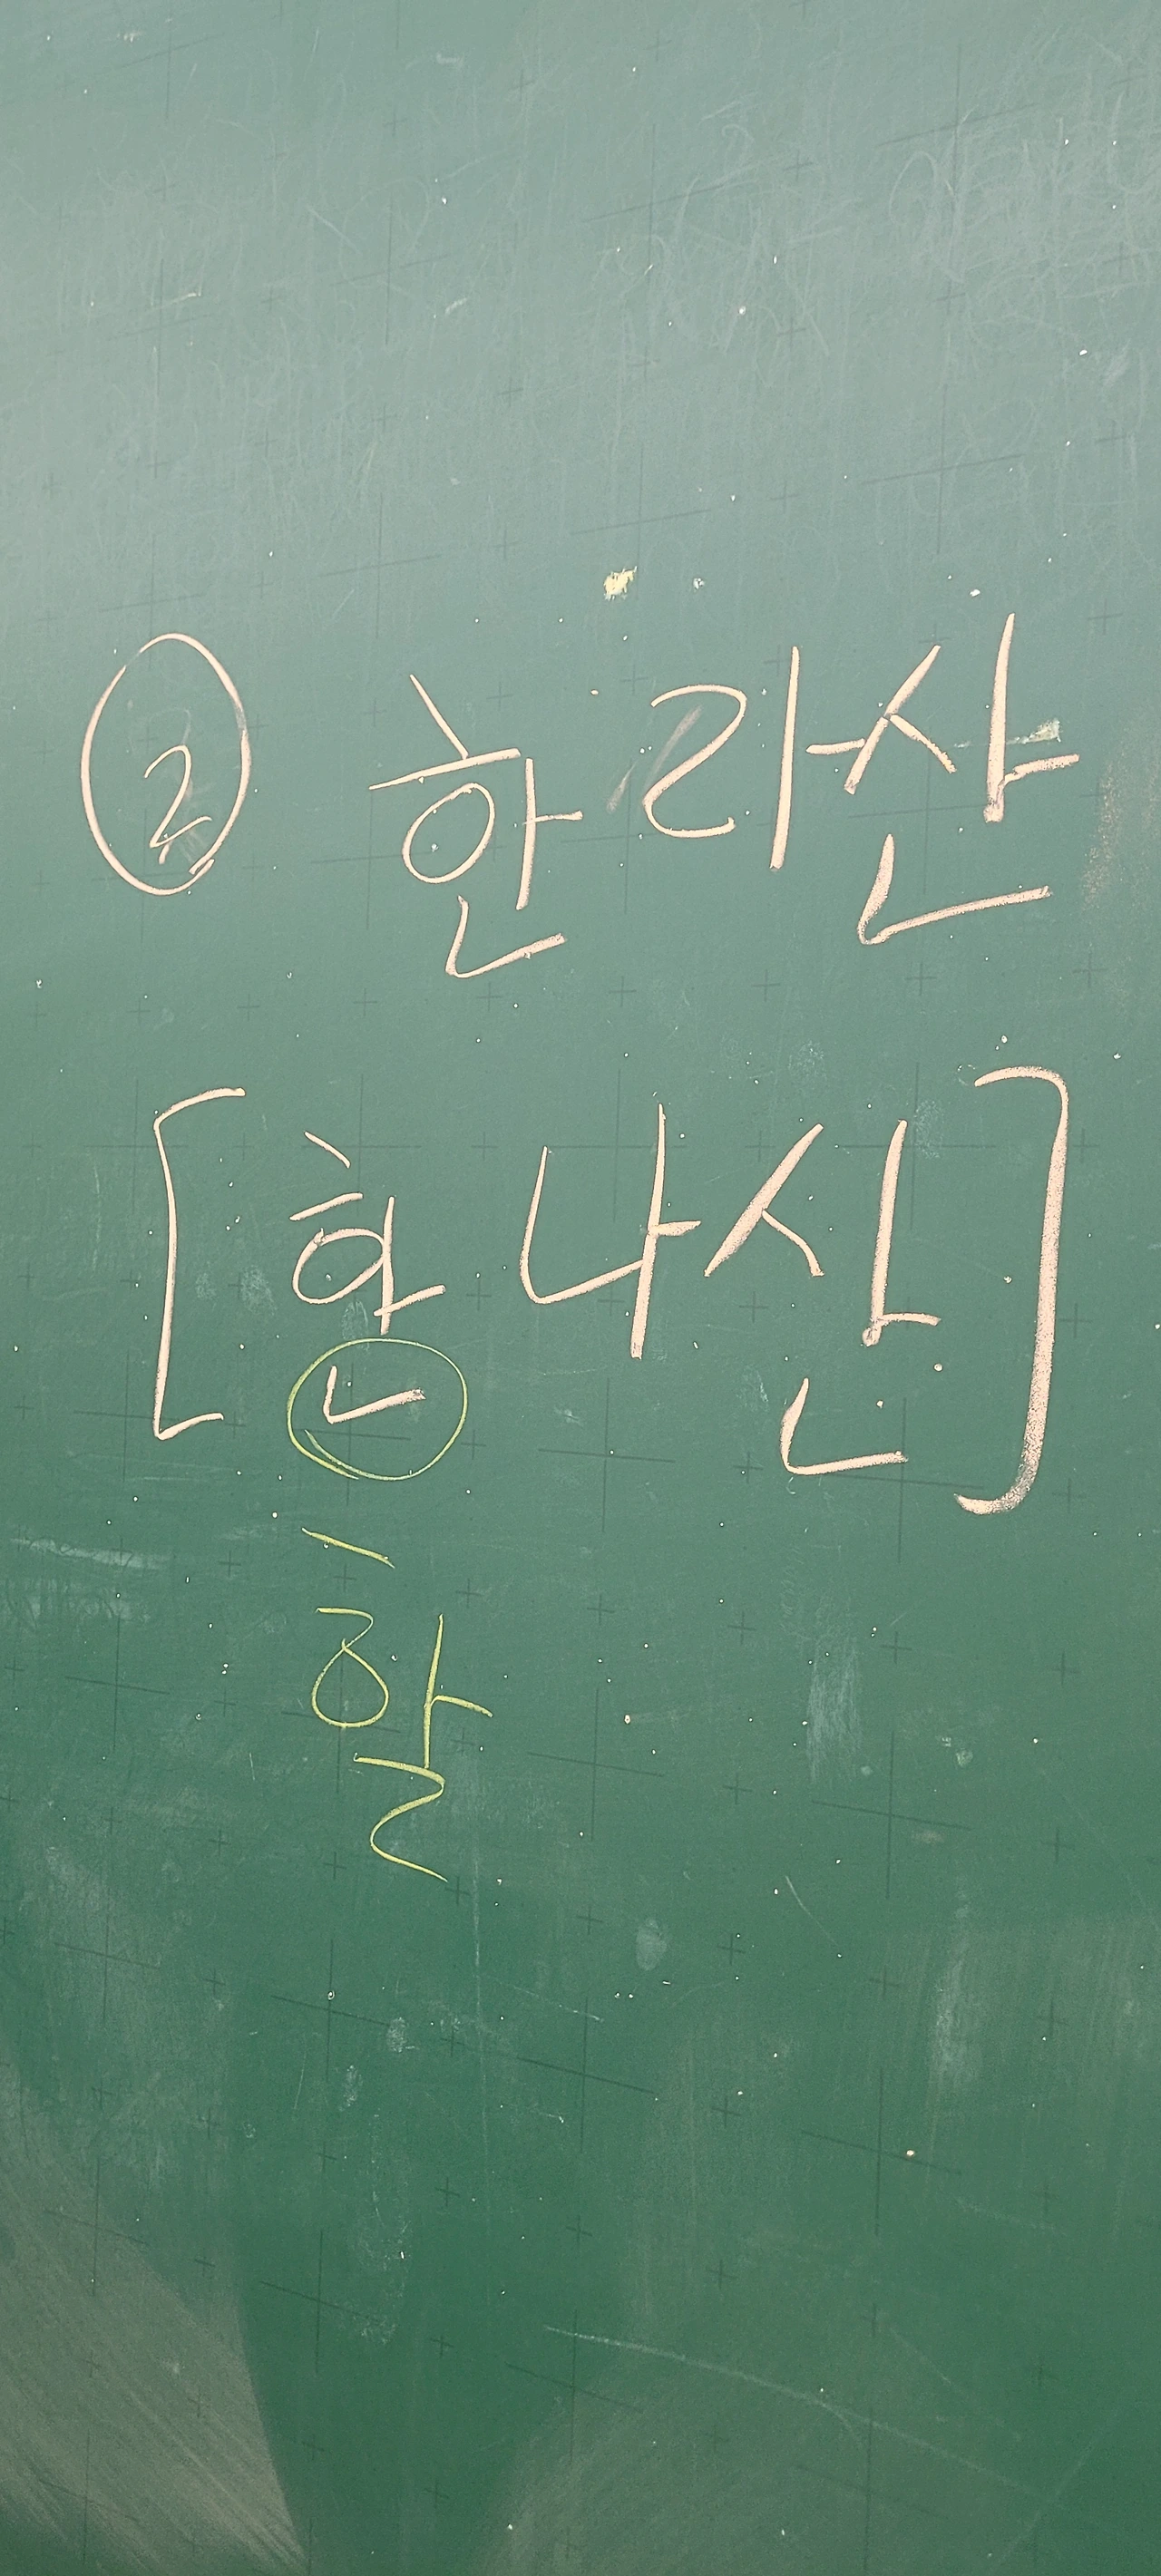 ② 한라산
[한나산]
할